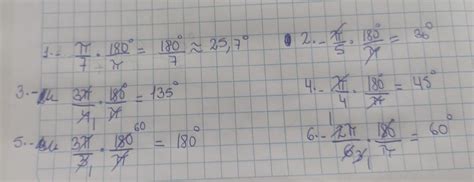 1.- π/7 · 180°/π = 180°/7 ≈ 25,7°
2.- π/5 · 180°/π = 36°
3.- 3π/4 · 180°/π = 135°
4.- π/4 · 180°/π = 45°
5.- 3π/3 · 180° 60/π = 180°
6.- 2π/6 · 180/π = 60°